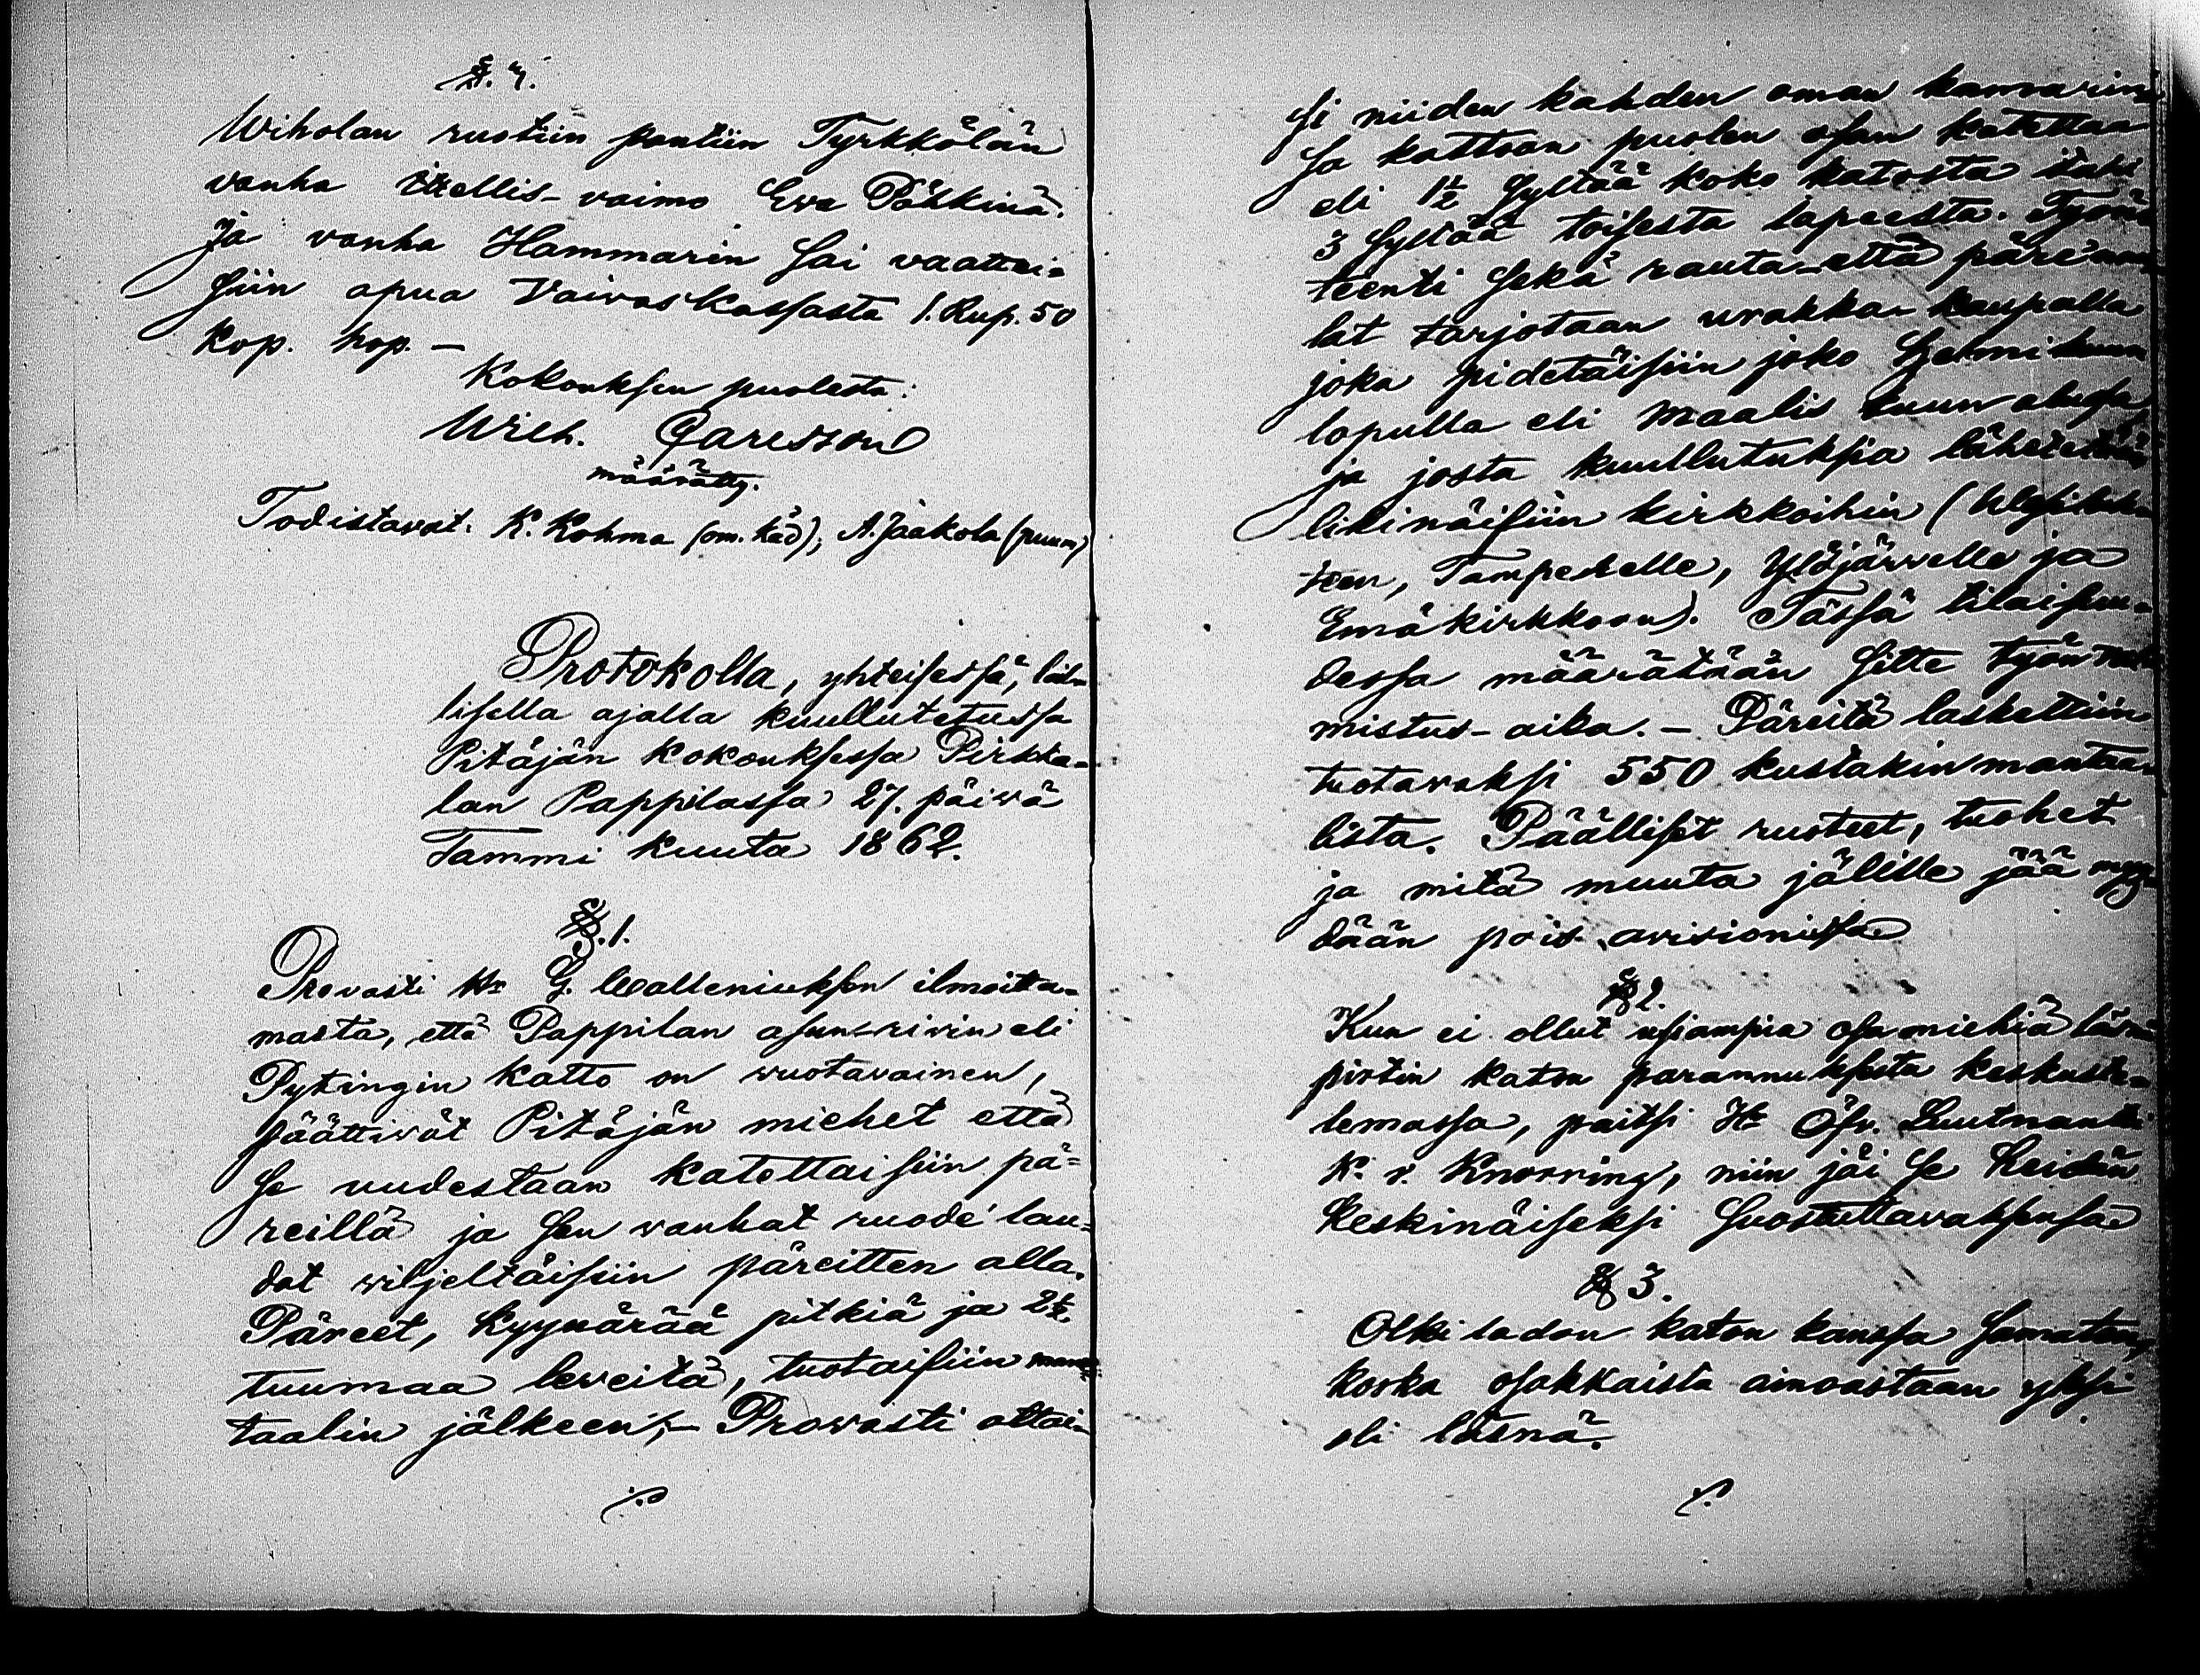 §. 7.
Wiholan ruotiin pantiin Tyrkkölän
vanha itellis-vaimo Eva Pähkinä.
Ja vanha Hammarin sai vaattei-
siin apua Vaivaskassasta 1. Rup. 50
kop. hop. —
Kokouksen puolesta:
Wilh. Carlsson
määrätty.
Todistavat. K. Kohma (om. käd); A. Jaakola (puum)
Protokolla, yhteisessä, lail-
lisella ajalla kuullutetussa
Pitäjän kokouksessa Pirkka-
lan Pappilassa 27. päivä
Tammi kuuta 1862.
§. 1.
Provasti Hr G. Walleniuksen ilmoitta-
masta, että Pappilan asun-rivin eli
Pytingin katto on vuotavainen,
päättivät Pitäjän miehet että
se uudestaan katettaisiin pä-
reillä ja sen vanhat ruode lau-
dat viljeltäisiin päreitten alla.
Päreet, kyynärää pitkiä ja 2½
tuumaa leveitä, tuotaisiin man-
taalin jälkeen, — Provasti ottai-
si niiden kahden oman kamarin
sa kattoon puolen osan katettaa
eli 1½ Syltää koko katosta
3 Syltää toisesta lapeesta. Työn
teenti sekä rauta- että päre
lat tarjotaan urakka-kaupalla
joka pidetäisiin joko Helmi kuun
lopulla eli Maalis kuun alussa
ja josta kuullutuksia lähetetään
likinäisiin kirkkoihin (
teen, Tamperelle, Ylöjärvelle ja
Emäkirkkoon). Tässä tilaisuu-
dessa määrätään sitte työn
mistus-aika. — Päreitä laskettiin
tuotavaksi 550 kustakin mantaa-
lista. Päälliset ruoteet, tuohet
ja mitä muuta jälille jää myy-
dään pois avisionissa
§ 2.
Kun ei ollut usiampia osamiehiä läsnä
pirtin katon parannuksesta keskuste-
lemassa, paitsi Hr Öfv. Luutnantti
K. v. Knorring, niin jäi se heidän
keskinäiseksi suostuttavaksensa
§ 3.
Olki ladon katon kanssa samaten,
koska osakkaista ainoastaan yksi
oli läsnä.